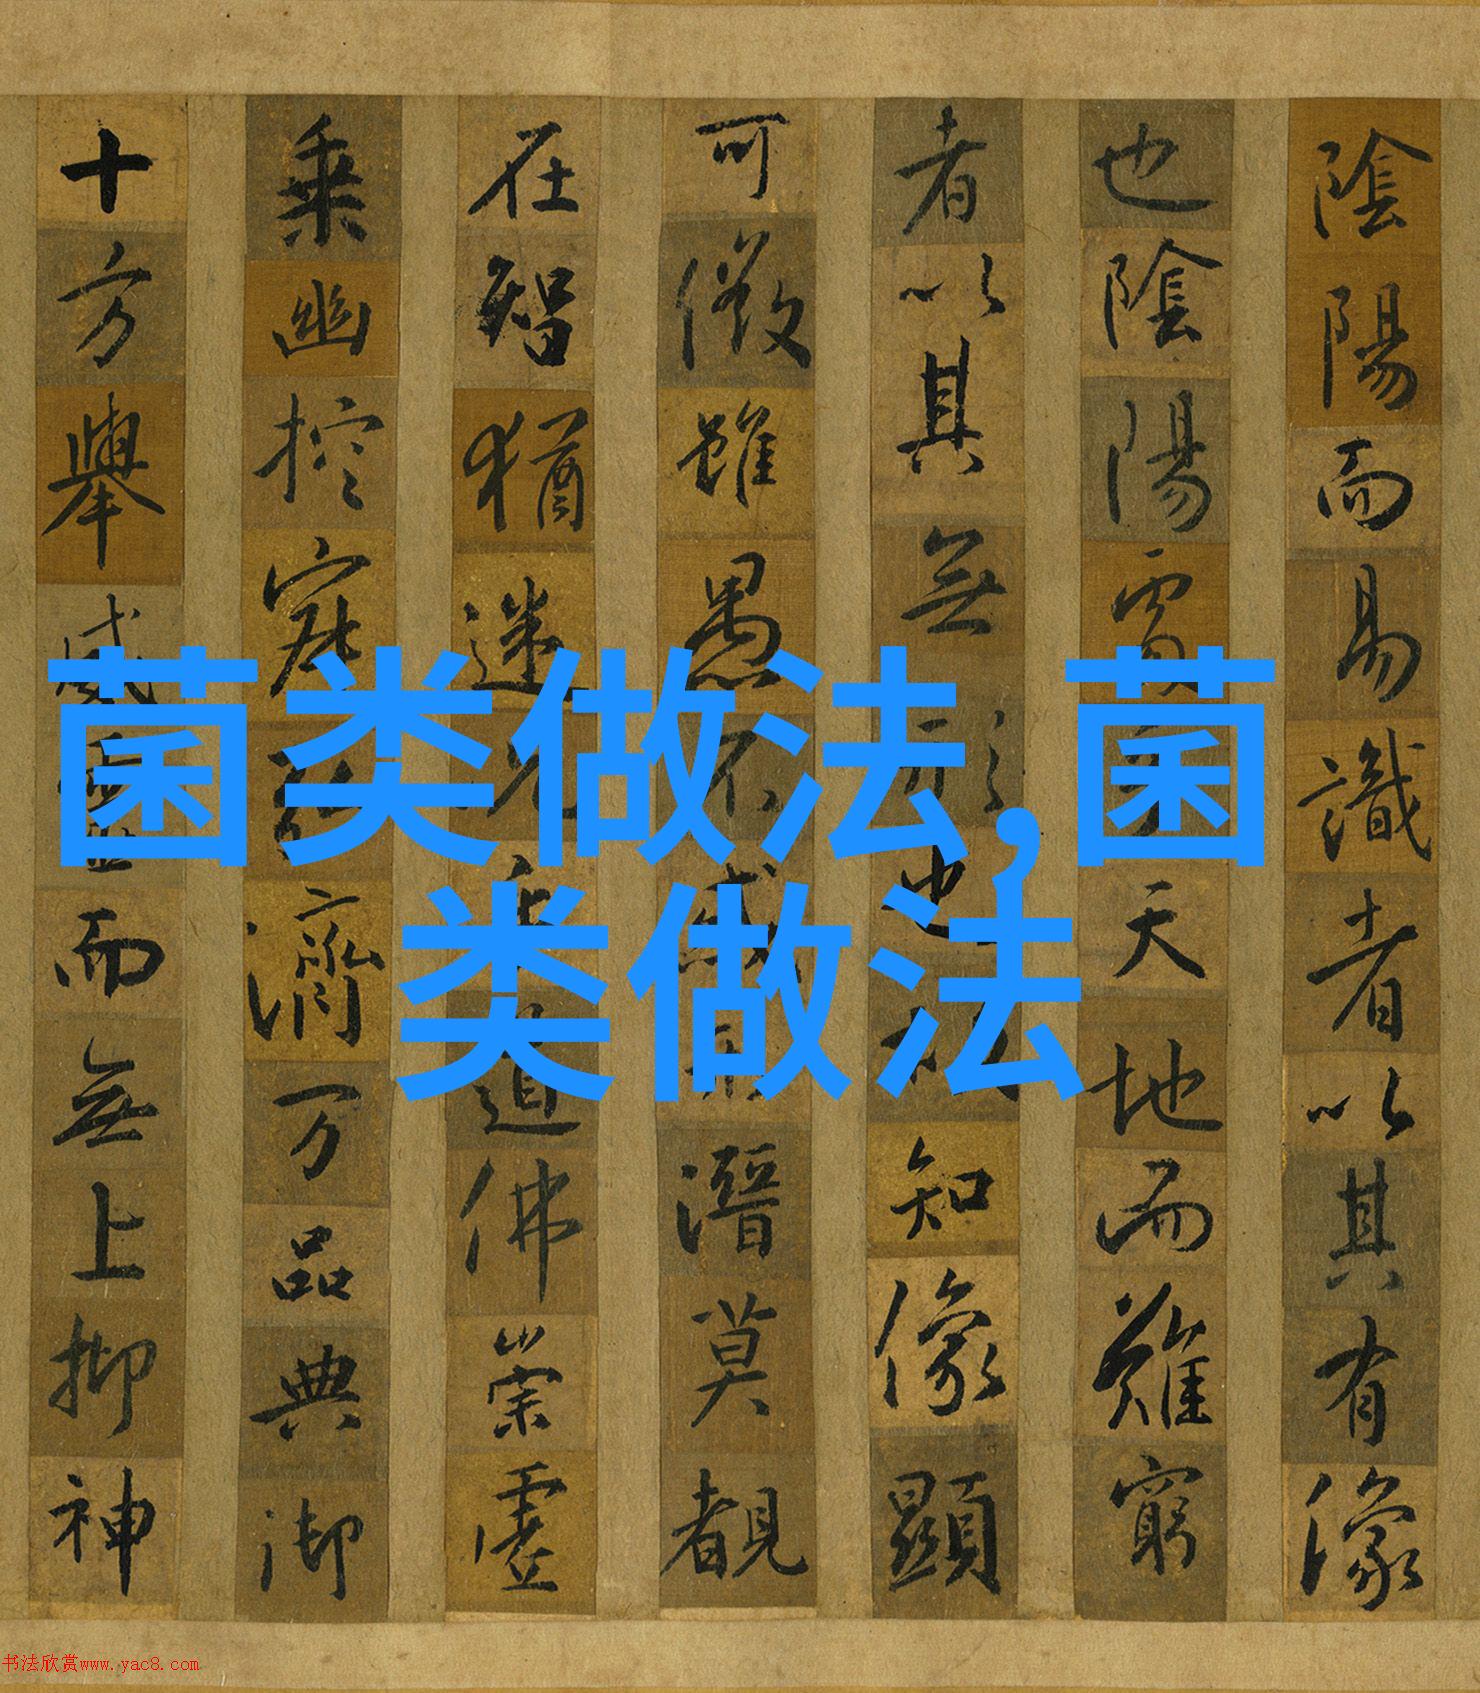 陰陽而易識者以其有像
也陰陽處天地而難窮
者以其無形也知像顯
可徵雖愚不惑形潛莫覩
在智猶迷況乎道佛崇虛
乘幽控寂弘濟万品典御
十方舉威靈而無上抑神
菌类做法,菌
类做法
书法欣赏www.yac8.com